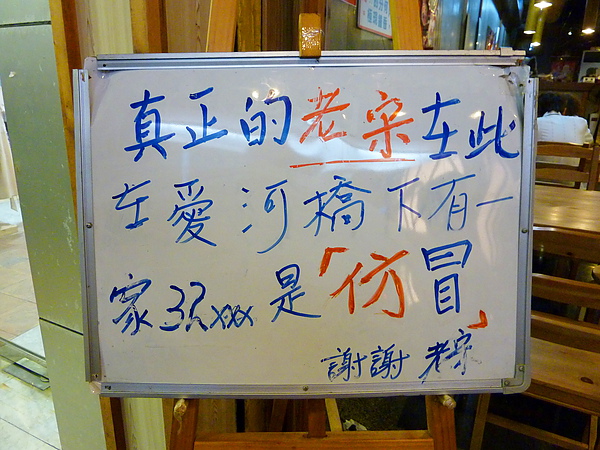 真正的老宋在此
在愛河橋下有一
家 33xxx 是「仿冒」
謝謝 老宋